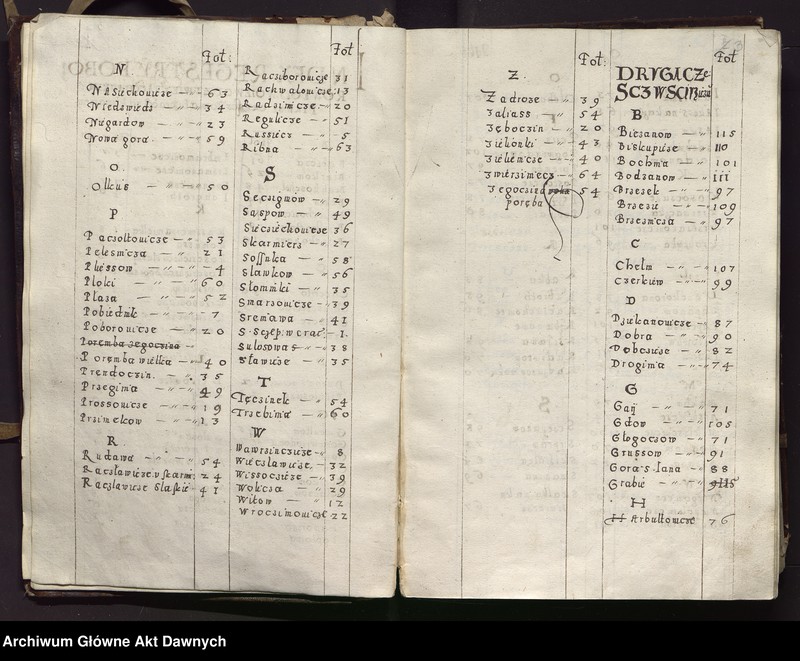 Fol:
N
Nasiechowicze 63
Niedzwiedz 34
Nugardow 23
Nowa gora 59
O
Olkus 50
P
Paczołtowicze 53
Pelesnicza 21
Plessow 4
Ploki 60
Płaza 52
Pobiednik 7
Poborowicze 20
Poremba zegoczina
Poremba wielka 40
Prendoczin 35
Przeginia 49
Prossowicze 19
Przinieczow 13
R
Rudawa 54
Raczławicze v skarmi: 24
Raczlawicze slaskie 41
Fol
Raciborowicze 31
Rachwalowicze 13
Radzimicze 20
Regulicze 51
Russiecz 5
Ribna 63
S
Seczignow 29
Saspow 49
Sieciechowicze 36
Skarmierz 27
Sossnka 58
Slawkow 56
Słomniki 35
Smarzowicze 39
Sremawa 41
S. Sczep: w crac: 1
Sulosowa 38
Sławice 35
T
Teczinek 54
Trzebinia 60
W
Wawrzinczicze 8
Wieczławicze 32
Wissoczicze 39
Wolicza 29
Witow 12
Wrocimowicze 22
Fol:
Z
Zadroze 39
Zaliass 54
Zeboczin 20
Zielonki 43
Zielienicze 40
Zwierziniecz 64
Zegoczina 54
poreba
23
Fol
DRVGICZe
SCZWSCIRzici
B
Biezanow 115
Biskupice 110
Bochnia 101
Bodzanow 111
Brzezek 97
Brzezie 109
Brzeznicza 97
C
Chelm 107
Czerkiew 99
D
Dziekanowicze 87
Dobra 90
Dobczice 82
Droginia 74
G
Gay 71
Gdow 105
Glogoczow 71
Grussow 91
Gora s. Iana 88
Grabie 115
H
Harbultowicze 76
Archiwum Główne Akt Dawnych